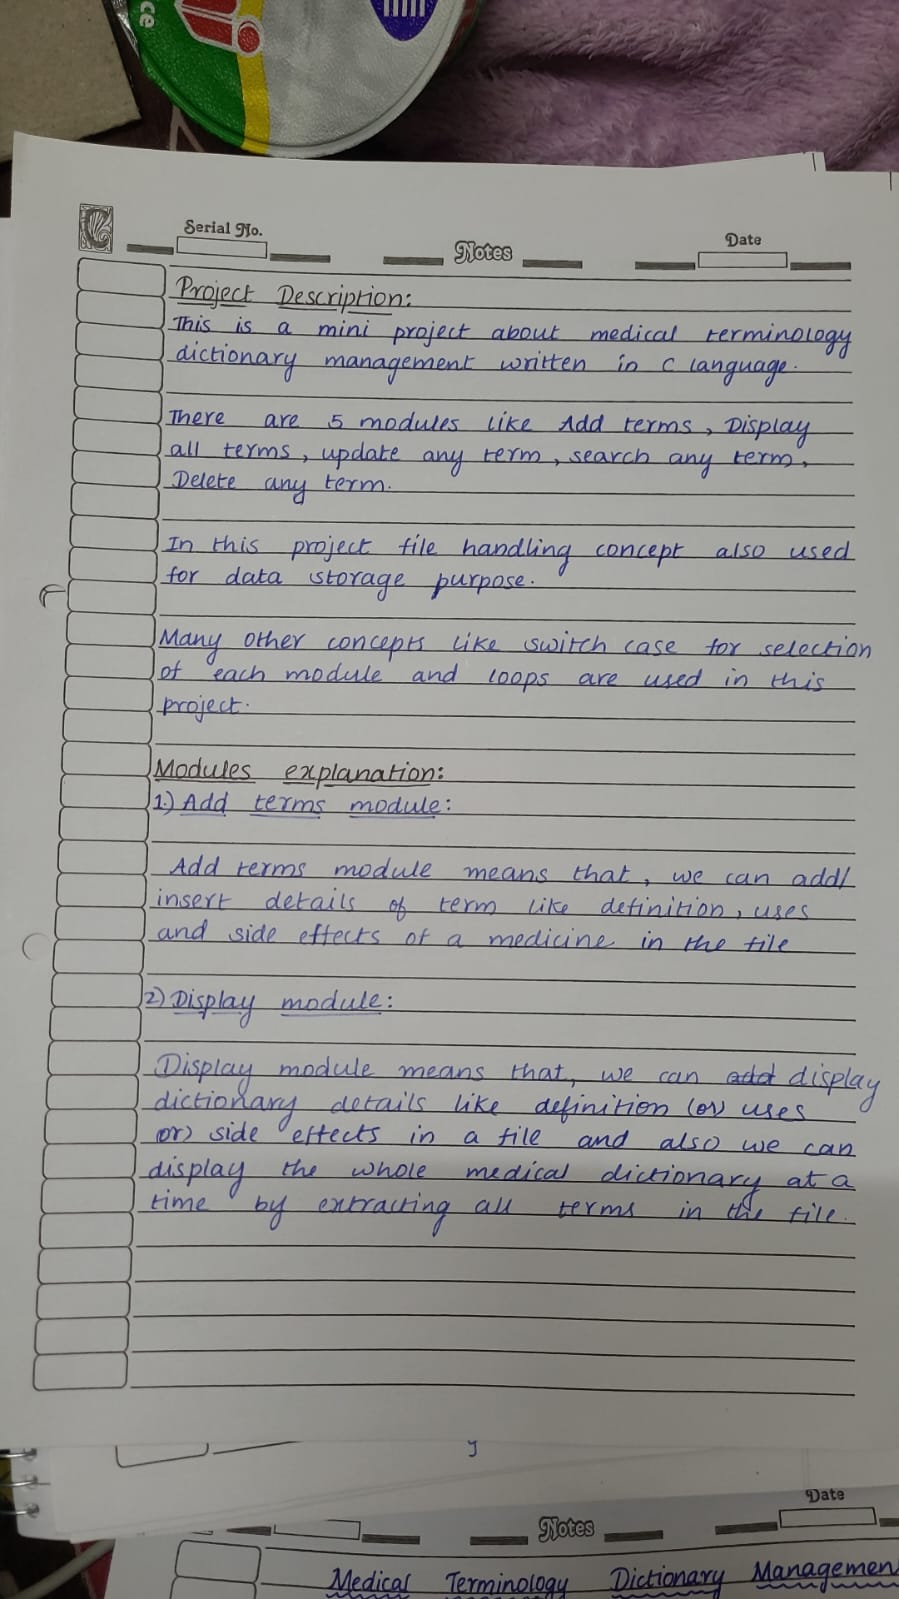 ce
Serial No.
Notes
Date
Project Description:
This is a mini project about medical terminology
dictionary management written in C language.
There are 5 modules like Add terms, Display
all terms, update any term, search any term,
Delete any term.
In this project file handling concept also used
for data storage purpose.
Many other concepts like switch case for selection
of each module and loops are used in this
project.
Modules explanation:
1.) Add terms module:
Add terms module means that, we can add/
insert details of term like definition, uses
and side effects of a medicine in the file
2) Display module:
Display module means that, we can add display
dictionary details like definition (or) uses
(or) side effects in a file and also we can
display the whole medical dictionary at a
time by extracting all terms in the file.
Date
Notes
Medical Terminology Dictionary Managemen